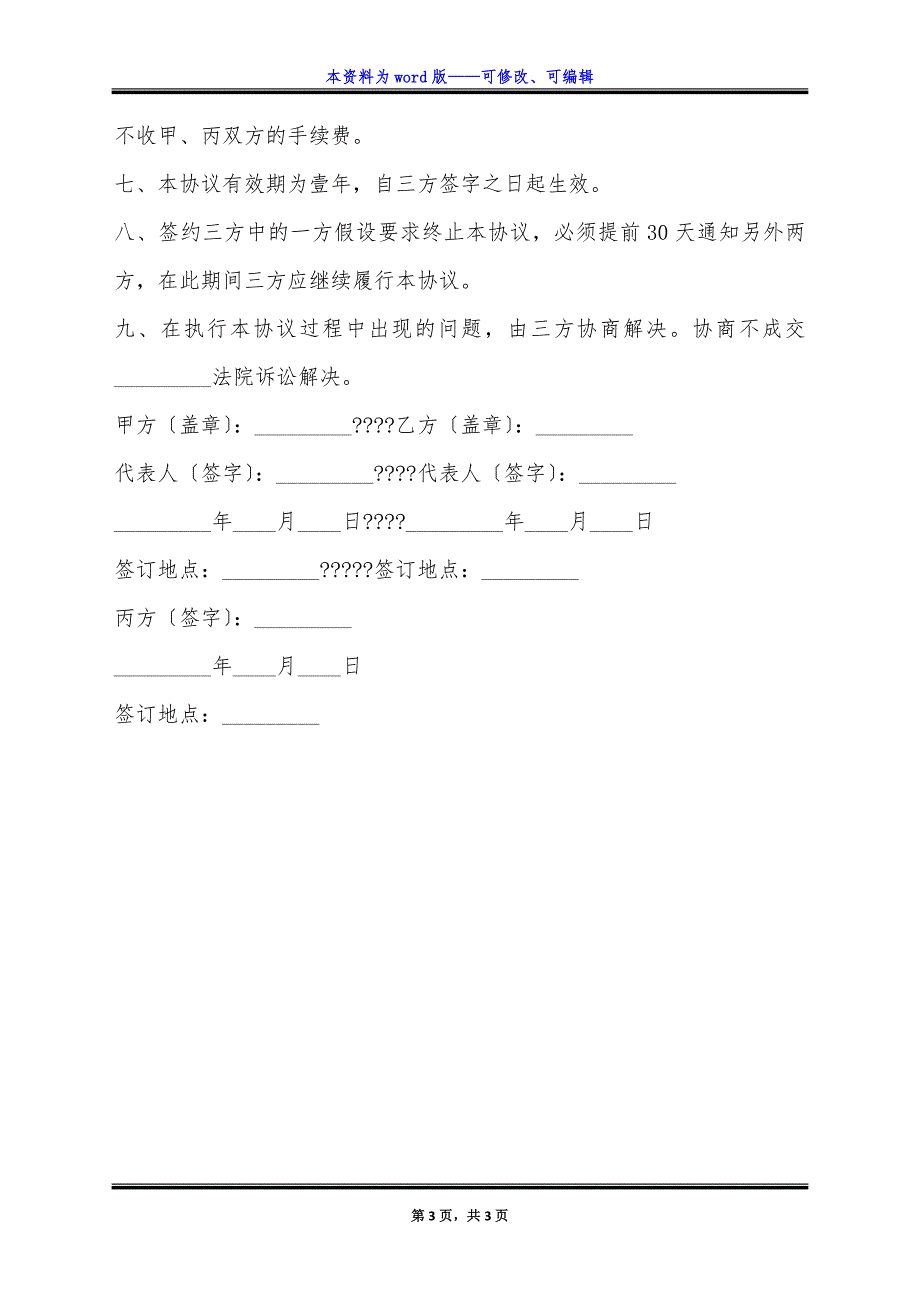 本资料为 word 版——可修改、可编辑
不收甲、丙双方的手续费。
七、本协议有效期为壹年，自三方签字之日起生效。
八、签约三方中的一方假设要求终止本协议，必须提前 30 天通知另外两
方，在此期间三方应继续履行本协议。
九、在执行本协议过程中出现的问题，由三方协商解决。协商不成交
_________法院诉讼解决。
甲方〔盖章〕：_________????乙方〔盖章〕：_________
代表人〔签字〕：_________????代表人〔签字〕：_________
_________年____月____日????_________年____月____日
签订地点：_________?????签订地点：_________
丙方〔签字〕：_________
_________年____月____日
签订地点：_________
第 3 页，共 3 页